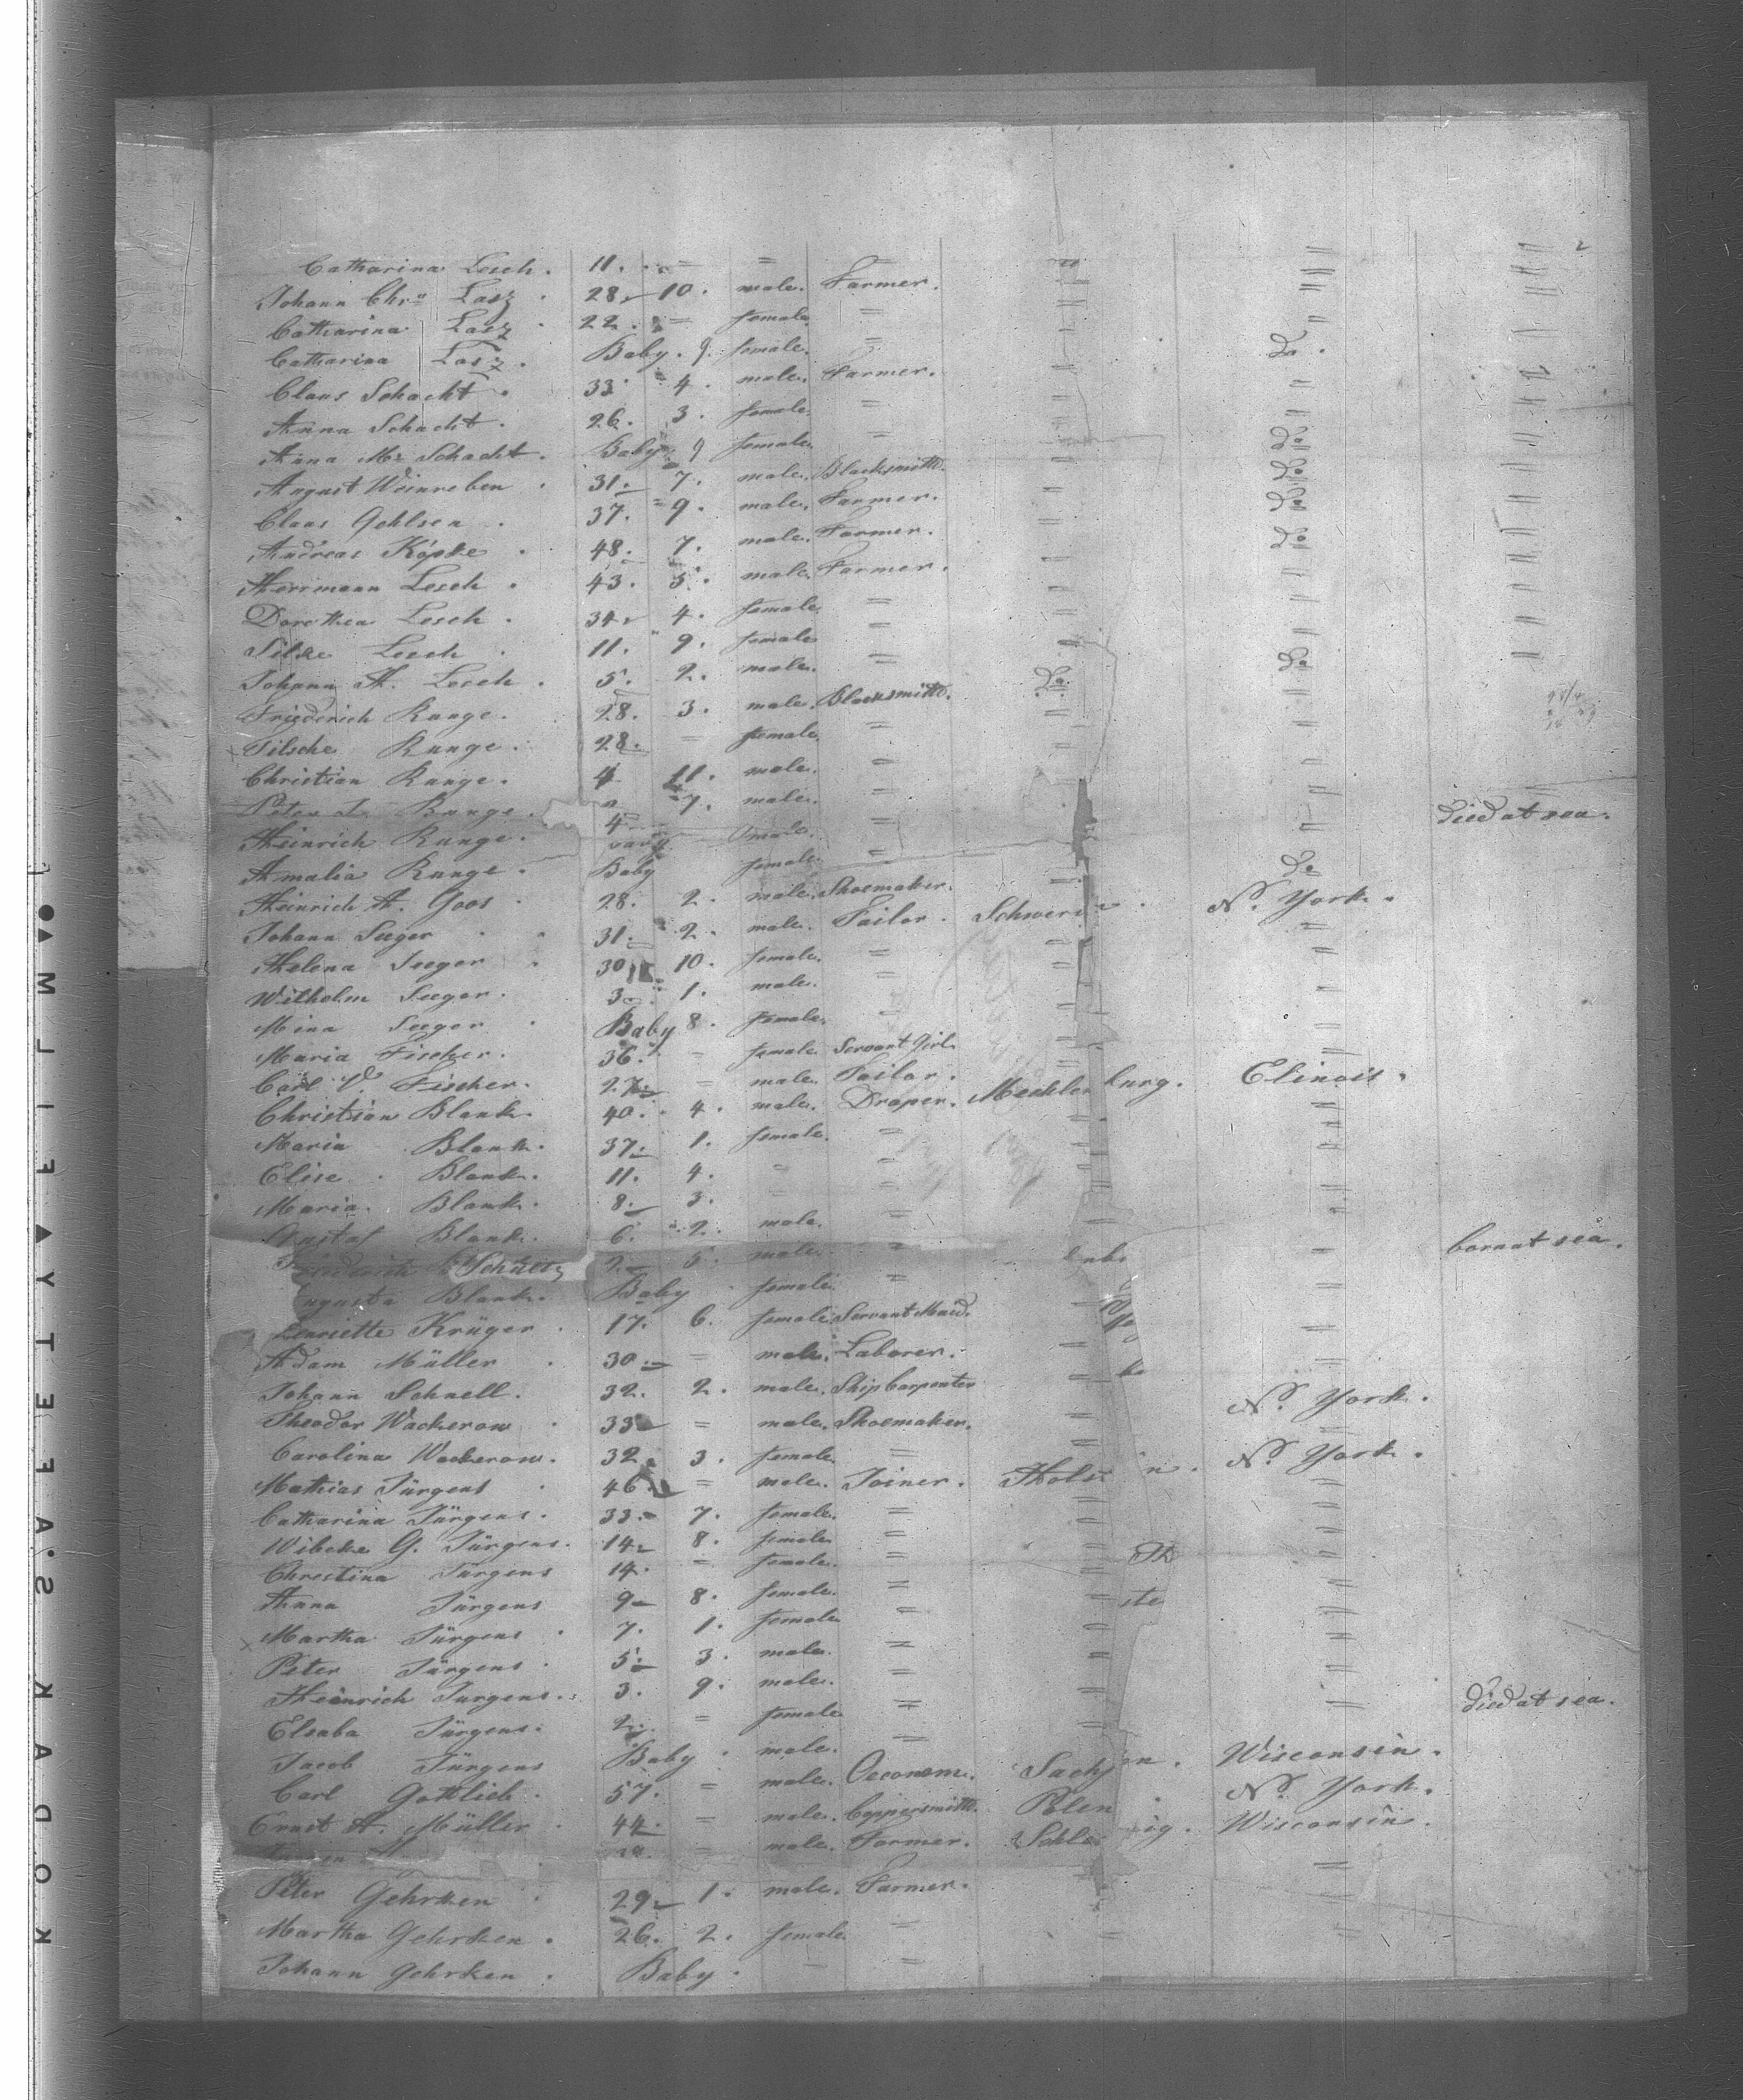 Catharina Lesch. 11. = = = " = =
Johann Chrn Lasz. 28. 10. male. Farmer. = =
Catharina Lasz. 22. = female. = = =
Catharina Lasz. Baby. 9. female. = = =
Claus Schacht. 33. 4. male. Farmer. = do.
Anna Schacht. 26. 3. female. = = =
Anna M. Schacht. Baby 9 female. = = =
August Weinreben. 31. 7. male. Blacksmith. = do
Claus Gehlsen. 37. 9. male. Farmer. = do
Andreas Köpke. 48. 7. male. Farmer. = do
Herrmann Lesch. 43. 5. male. Farmer. = do
Dorothea Lesch. 34. 4. female. = = =
Silke Lesch. 11. 9. female = = =
Johann H. Lesch. 5. 2. male. = = =
Friederich Runge. 28. 3. male. Blacksmith. do. do
Silsche Runge. 28. = female. = = =
Christian Runge. 4 11. male. = = =
Peter Runge. 7. male. = =
Heinrich Runge. 4 male. = = died at sea.
Amalia Runge. Baby female. = =
Heinrich H. Goos. 28. 2. male. Shoemaker. = do
Johann Seeger. 31. 2. male. Tailor. Schwerin. N. York.
Helena Seeger. 30 10. female. = = =
Wilhelm Seeger. 3. 1. male. = = =
Mina Seeger. Baby 8. female. = = =
Maria Fischer. 36. = female. Servant Girl. = =
Carl Fischer. 27. = male. Tailor. = =
Christian Blank. 40. 4. male. Draper. Mecklenburg. Elinois.
Maria Blank. 37. 1. female. = = =
Elise Blank. 11. 4. = = = =
Maria Blank. 8. 3. = = = =
Gustaf Blank. 6. 2. male. = = =
Schuetz 2. 5. male. = =
Augusta Blank. Baby female. = = born at sea.
Henriette Krüger. 17. 6. female. Servant Maid. =
Adam Müller. 30. = male. Laborer. = =
Johann Schnell. 32. 2. male. Ship Carpenter = =
Theodor Wackerow. 33 = male. Shoemaker. = N. York.
Carolina Wackerow. 32. 3. female. = = =
Mathias Jürgens. 46. = male. Joiner. Hols n. N. York.
Catharina Jürgens. 33. 7. female. = = =
Wibcke G. Jürgens. 14. 8. female = = =
Christina Jürgens 14. = female. = = =
Anna Jürgens 9 8. female. = = =
Martha Jürgens. 7. 1. female = = =
Peter Jürgens. 5. 3. male. = = =
Heinrich Jurgens. 3. 9. male. = = =
Elsaba Jürgens. 2. = female = = =
Jacob Jürgens Baby. male. = = = died at sea.
Carl Gottlieb. 57. = male. Oeconom. Sachsen. Wisconsin.
Ernst A. Müller. 44. = male. Coppersmith. Polen N. York.
= male. Farmer. Schle ig. Wisconsin.
Peter Gehrken. 29. 1. male. Farmer. =
Martha Gehrken. 26. 2. female. = =
Johann Gehrken. Baby. = =
KODAK·SAFETY▲FILM▲●